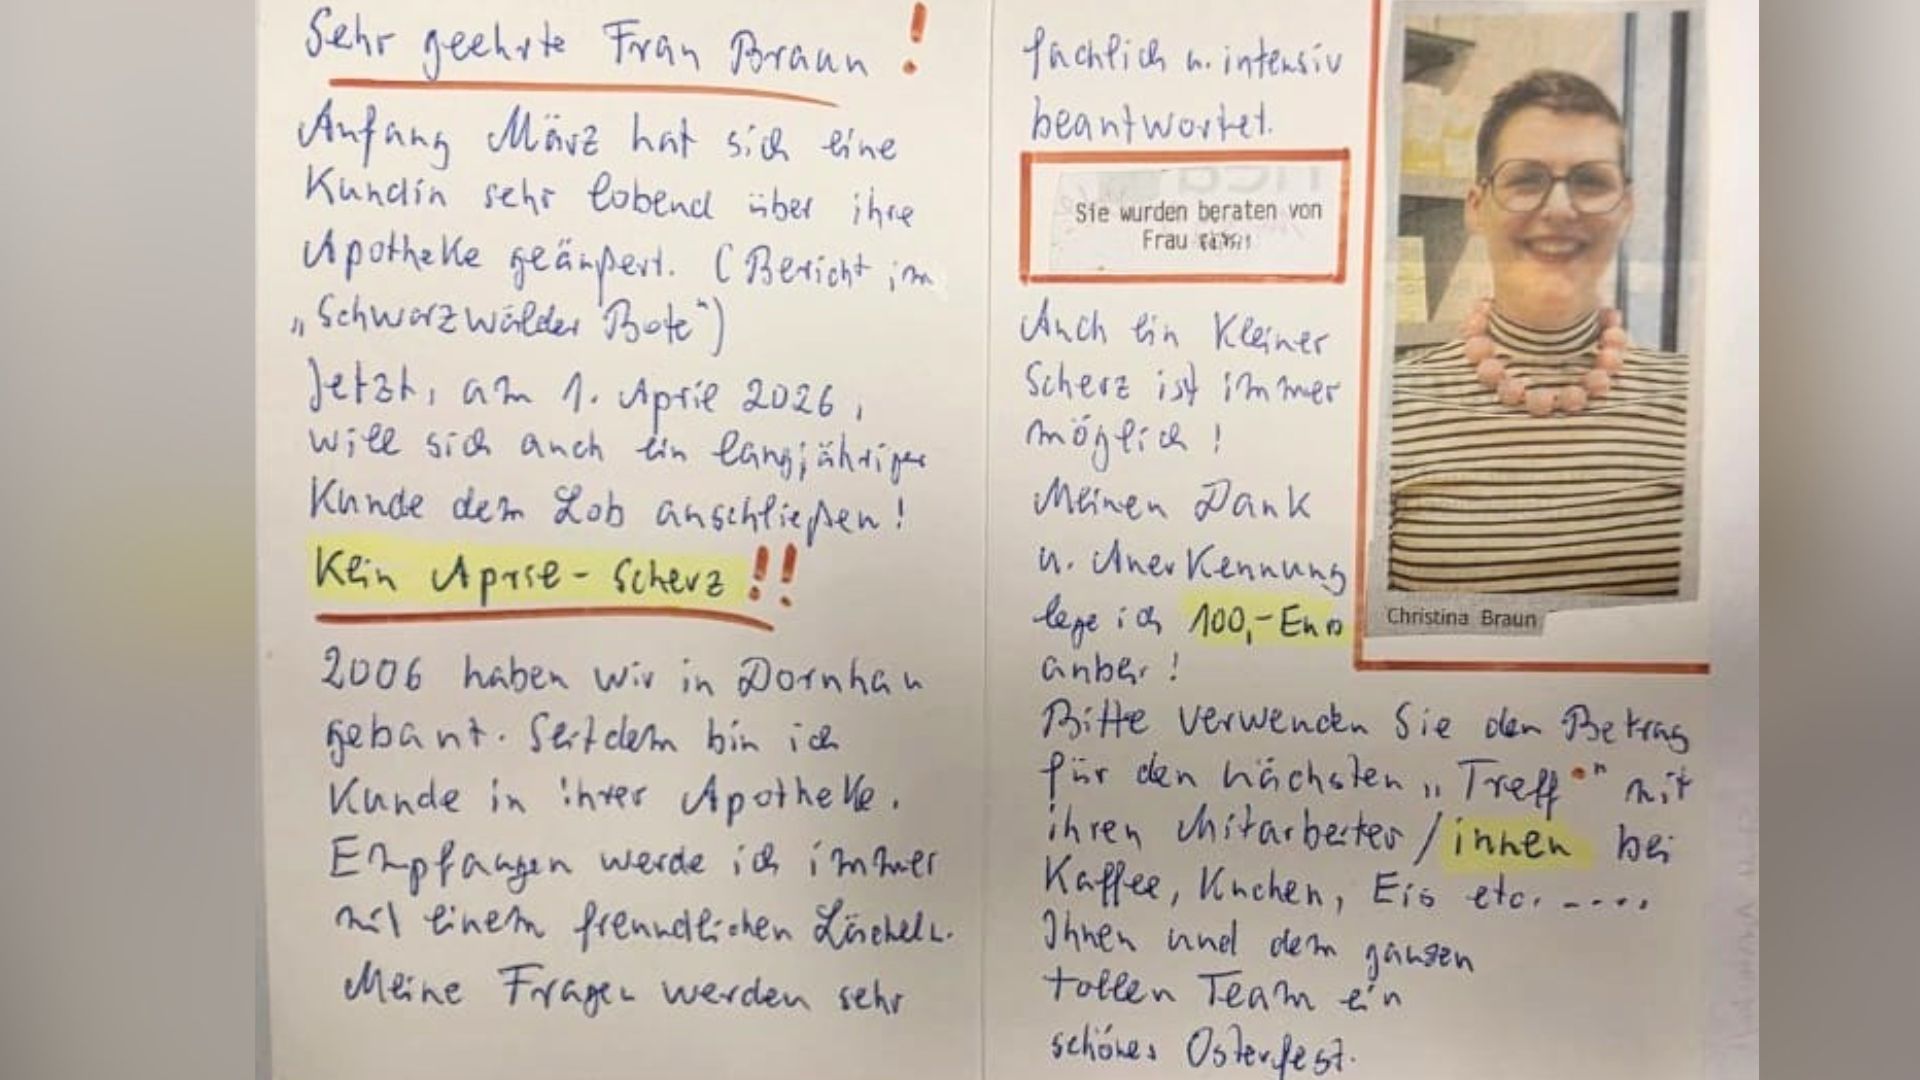 Sehr geehrte Frau Braun!
Anfang März hat sich eine
Kundin sehr lobend über ihre
Apotheke geäußert. (Bericht im
„Schwarzwälder Bote")
Jetzt, am 1. April 2026,
will sich auch ein langjähriger
Kunde dem Lob anschließen!
Kein April-Scherz!!
2006 haben wir in Dornhan
gebaut. Seitdem bin ich
Kunde in ihrer Apotheke.
Empfangen werde ich immer
mit einem freundlichen Lächeln.
Meine Fragen werden sehr
fachlich u. intensiv
beantwortet.
Sie wurden beraten von
Frau
Auch ein kleiner
Scherz ist immer
möglich!
Meinen Dank
u. Anerkennung
lege ich 100,- Euro
anbei!
Christina Braun
Bitte verwenden Sie den Betrag
für den nächsten „Treff" mit
ihren Mitarbeiter/innen bei
Kaffee, Kuchen, Eis etc. -....
Ihnen und dem ganzen
tollen Team ein
schönes Osterfest.